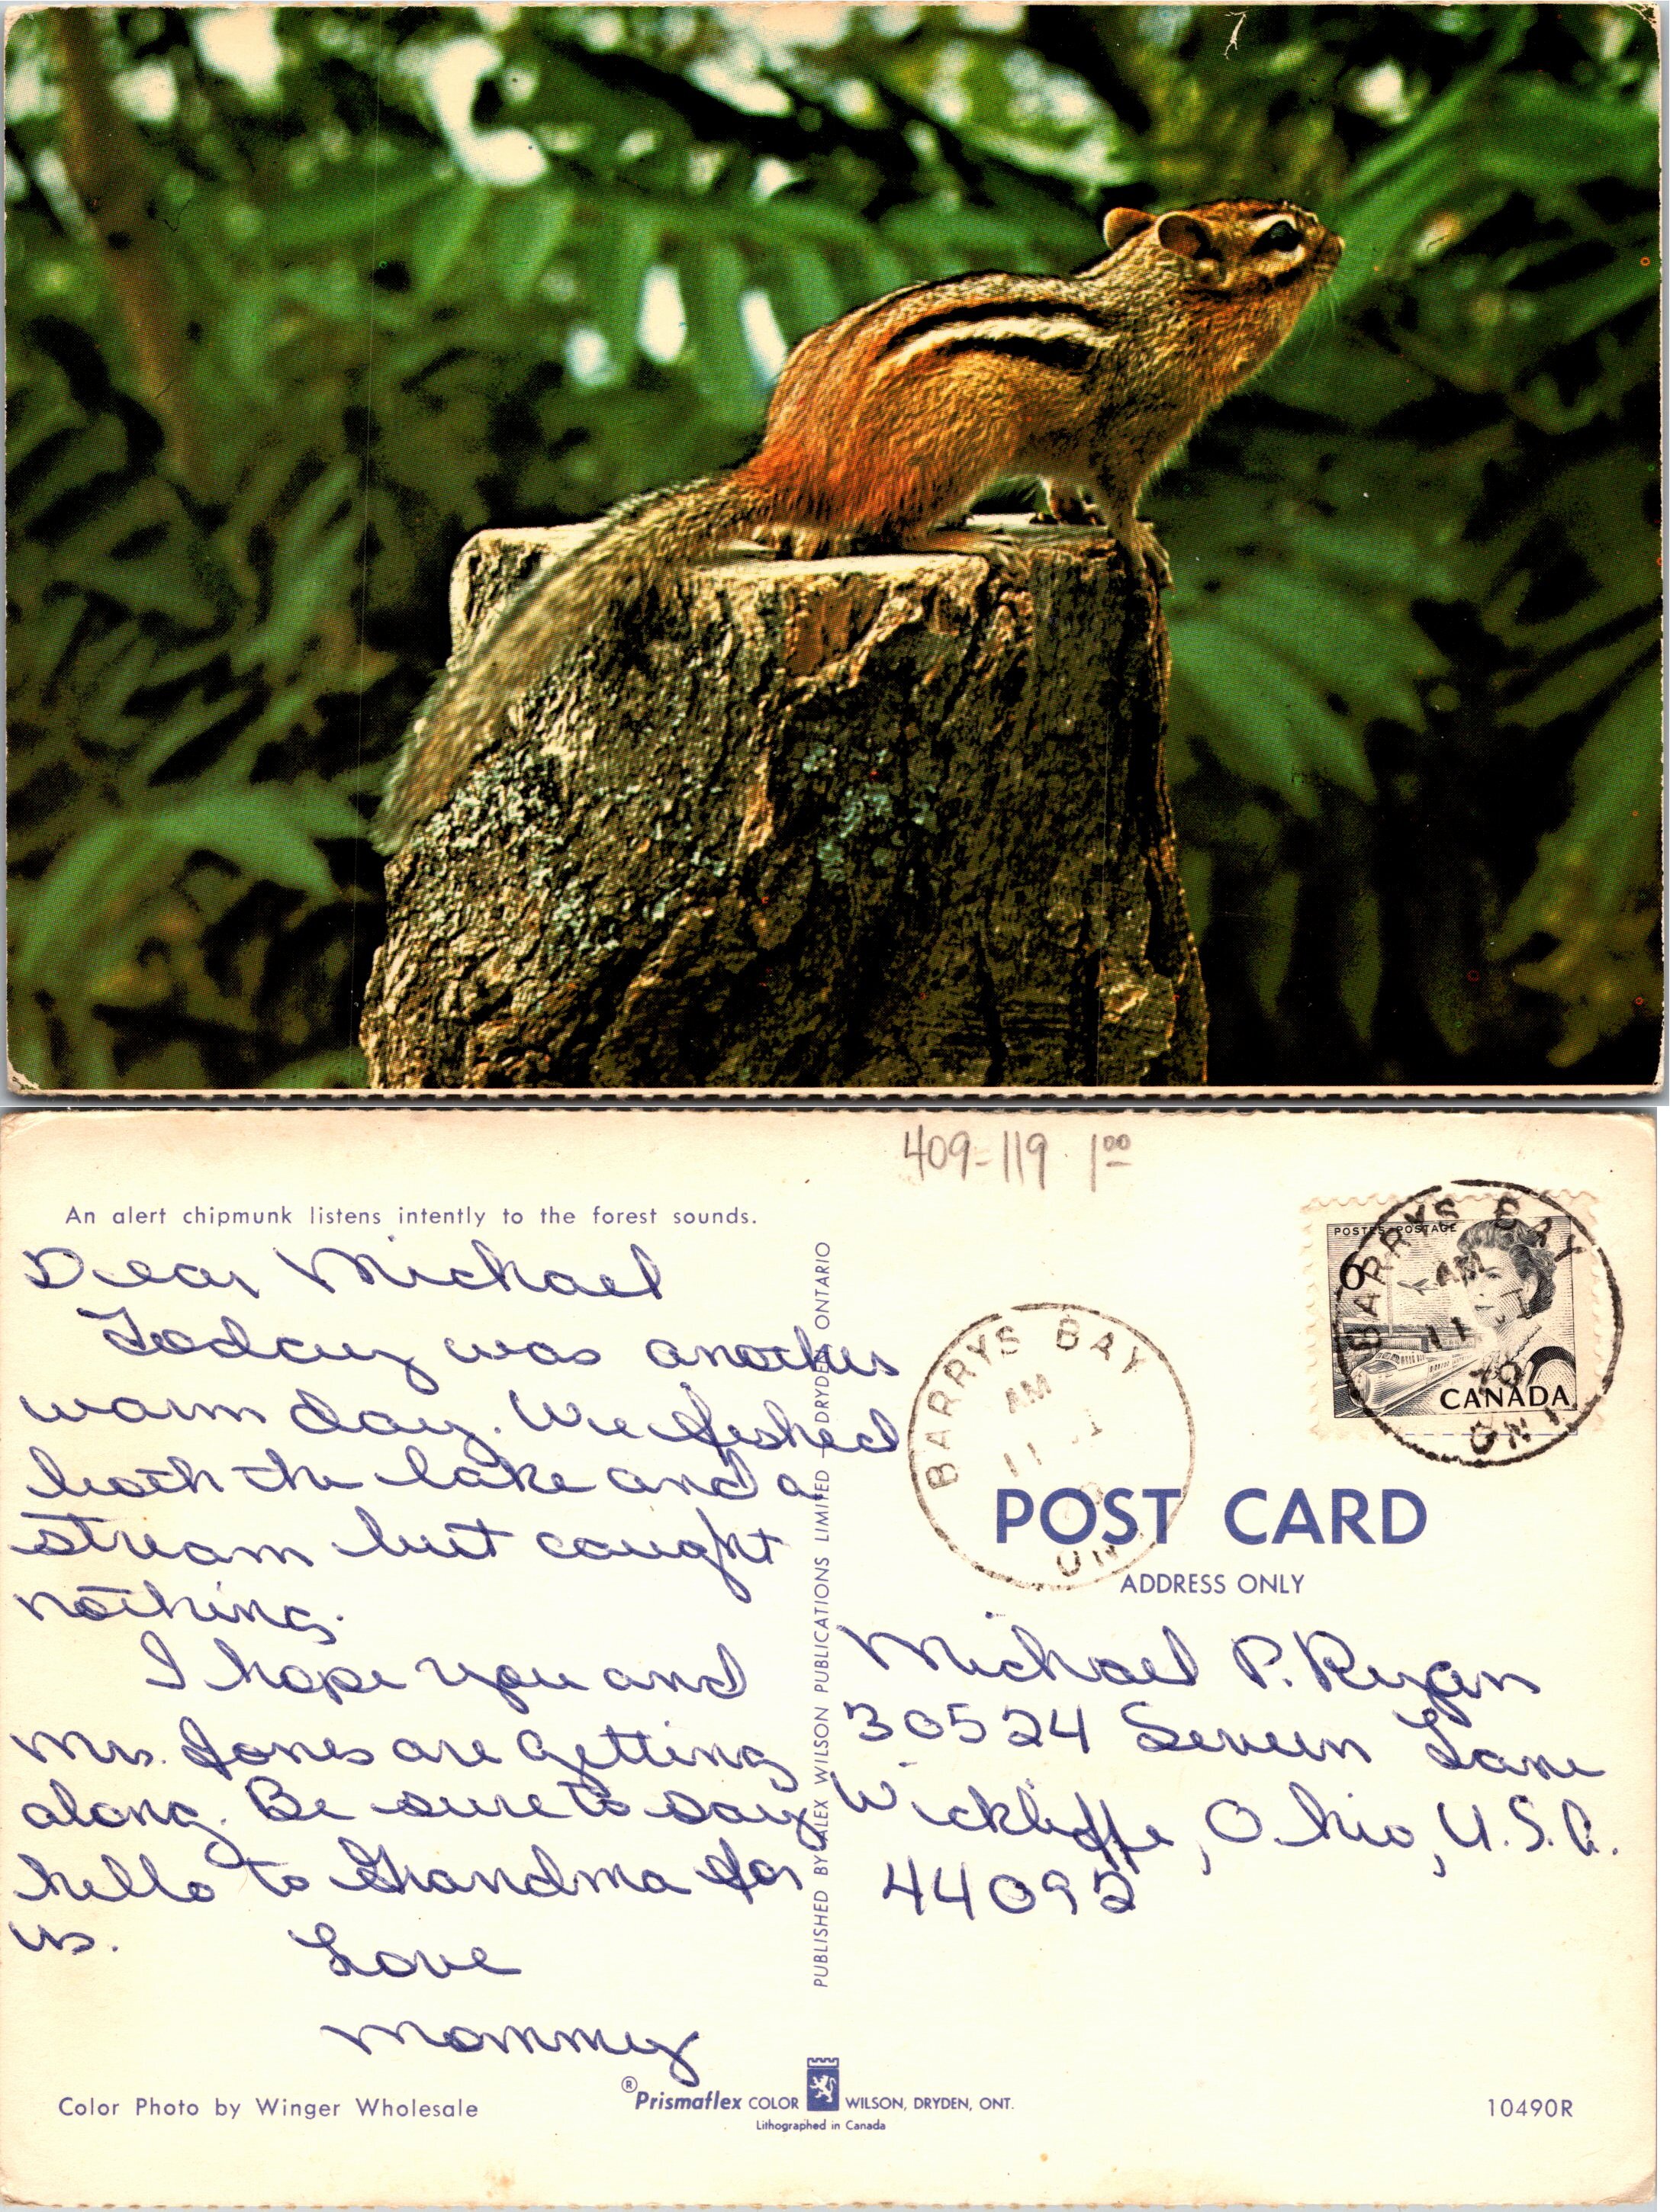 409-119 1.00
An alert chipmunk listens intently to the forest sounds.
Dear Michael
Today was another
warm day. We fished
both the lake and a
stream but caught
nothing.
I hope you and
Mrs. Jones are getting
along. Be sure to say
hello to Grandma for
us.
Love
Mommy
Color Photo by Winger Wholesale
PUBLISHED BY ALEX WILSON PUBLICATIONS LIMITED - DRYDEN, ONTARIO
® Prismaflex COLOR WILSON, DRYDEN, ONT.
Lithographed in Canada
BARRYS BAY
AM
11
ON
POSTES POSTAGE
6
CANADA
BARRYS BAY
AM
11
70
ONT.
POST CARD
ADDRESS ONLY
Michael P. Ryan
30524 Lane
Wickliffe, Ohio, U.S.A.
44092
10490R